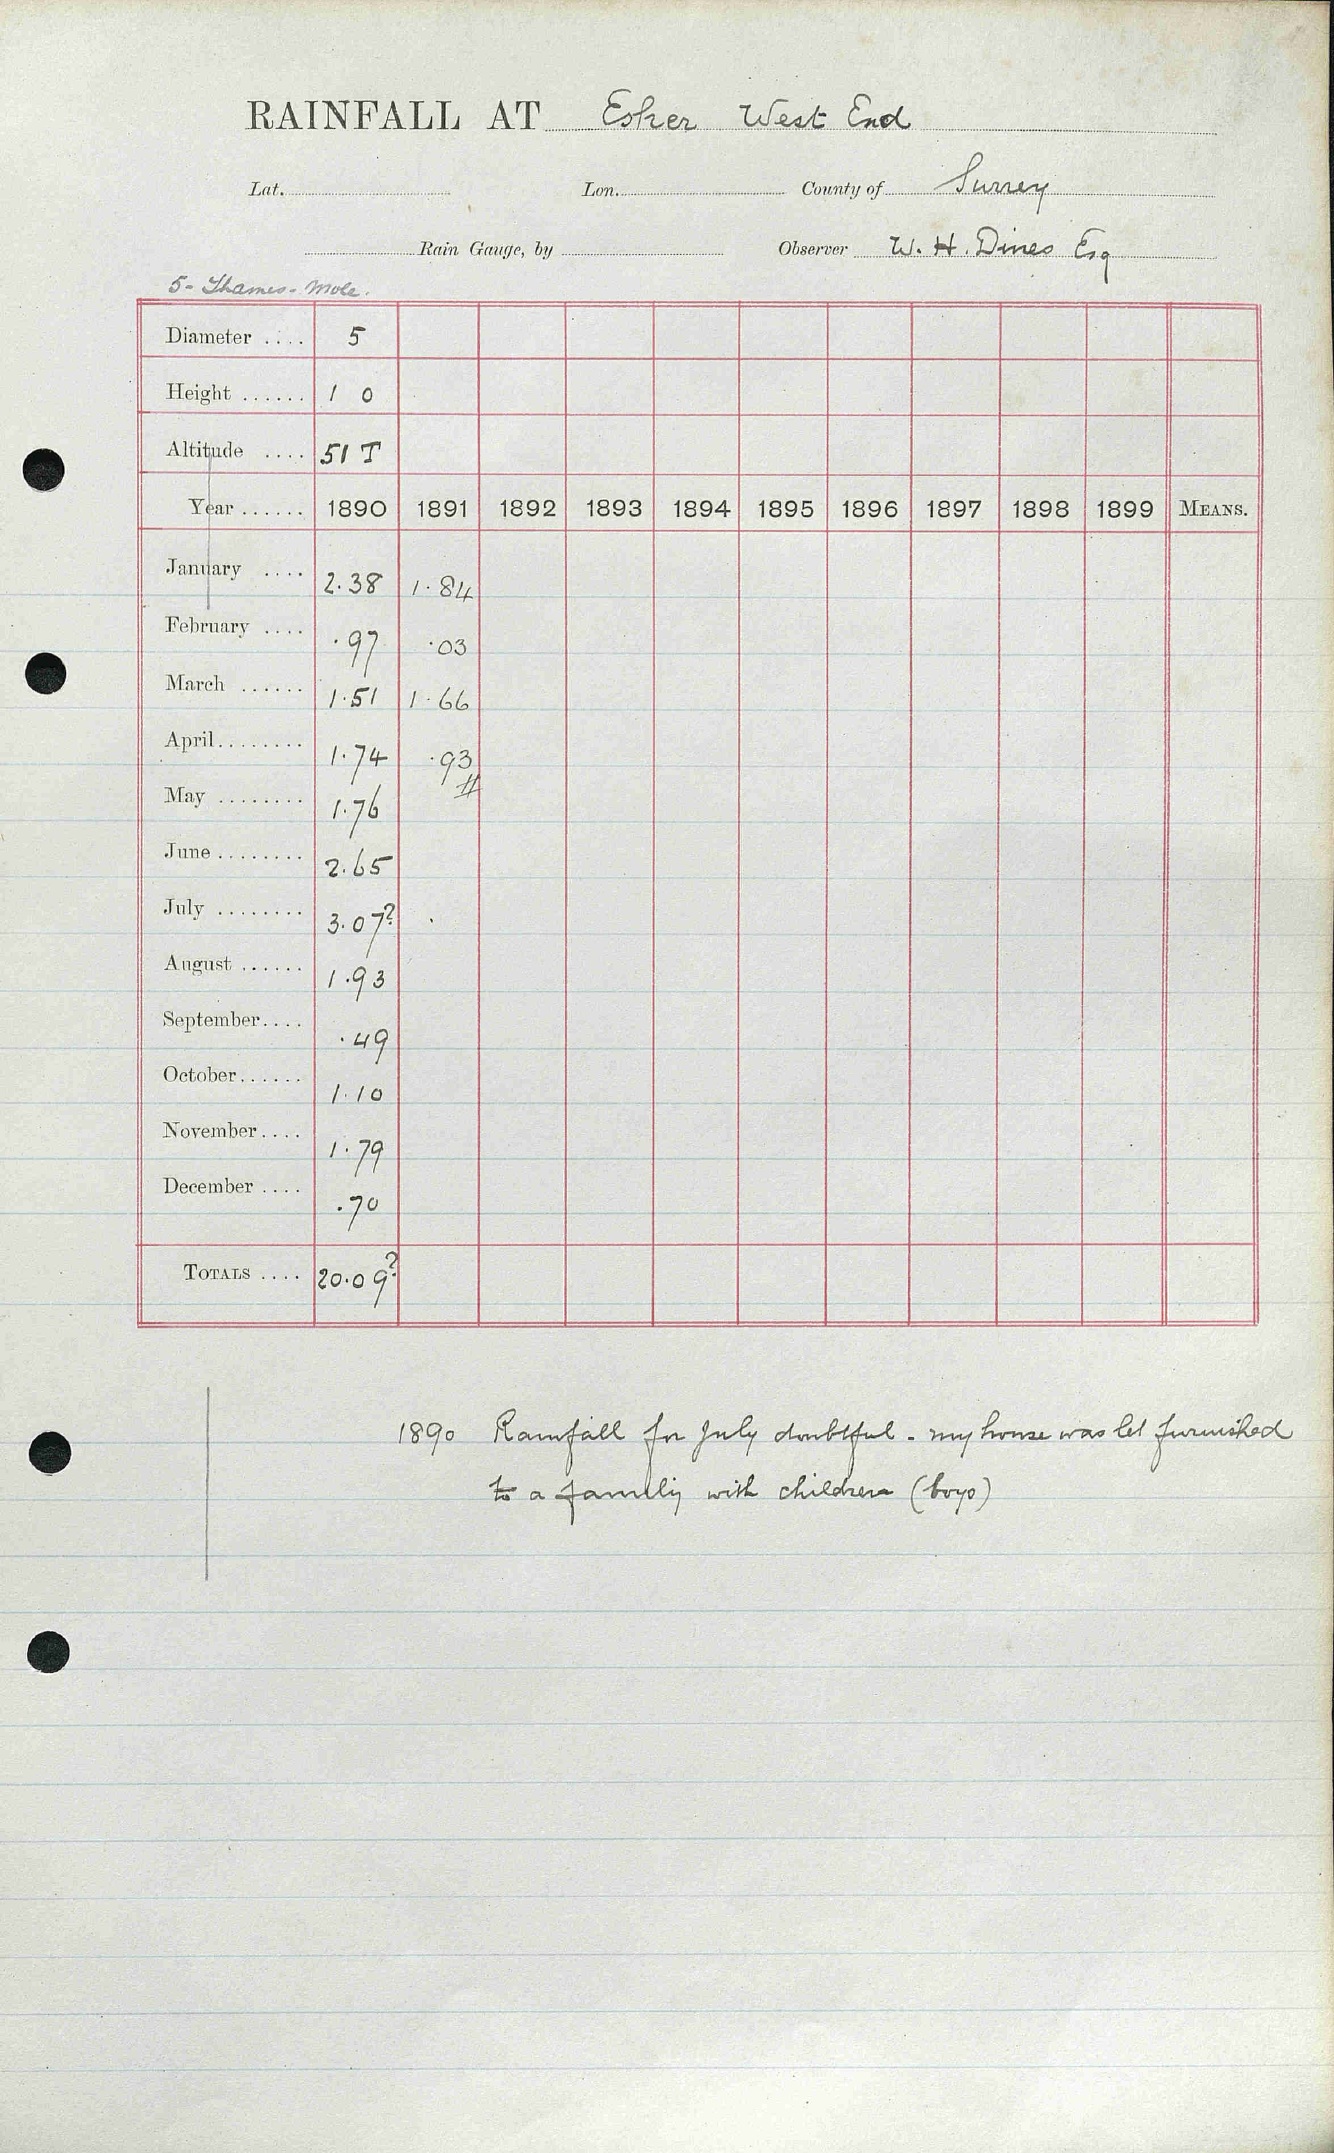 RAINFALL AT Esher West End
Lat. Lon. County of Surrey
Rain Gauge, by Observer W. H. Dines Esq
5 - Thames - Mole.
Diameter .... 5
Height ...... 1 0
Altitude .... 51 T
Year ...... 1890 1891 1892 1893 1894 1895 1896 1897 1898 1899 MEANS.
January .... 2.38 1.84
February .... .97 .03
March ...... 1.51 1.66
April........ 1.74 .93
May ........ 1.76
June ........ 2.65
July ........ 3.07?
August ...... 1.93
September.... .49
October...... 1.10
November.... 1.79
December .... .70
TOTALS .... 20.09?
1890 Rainfall for July doubtful - my house was let furnished
to a family with children (boys)